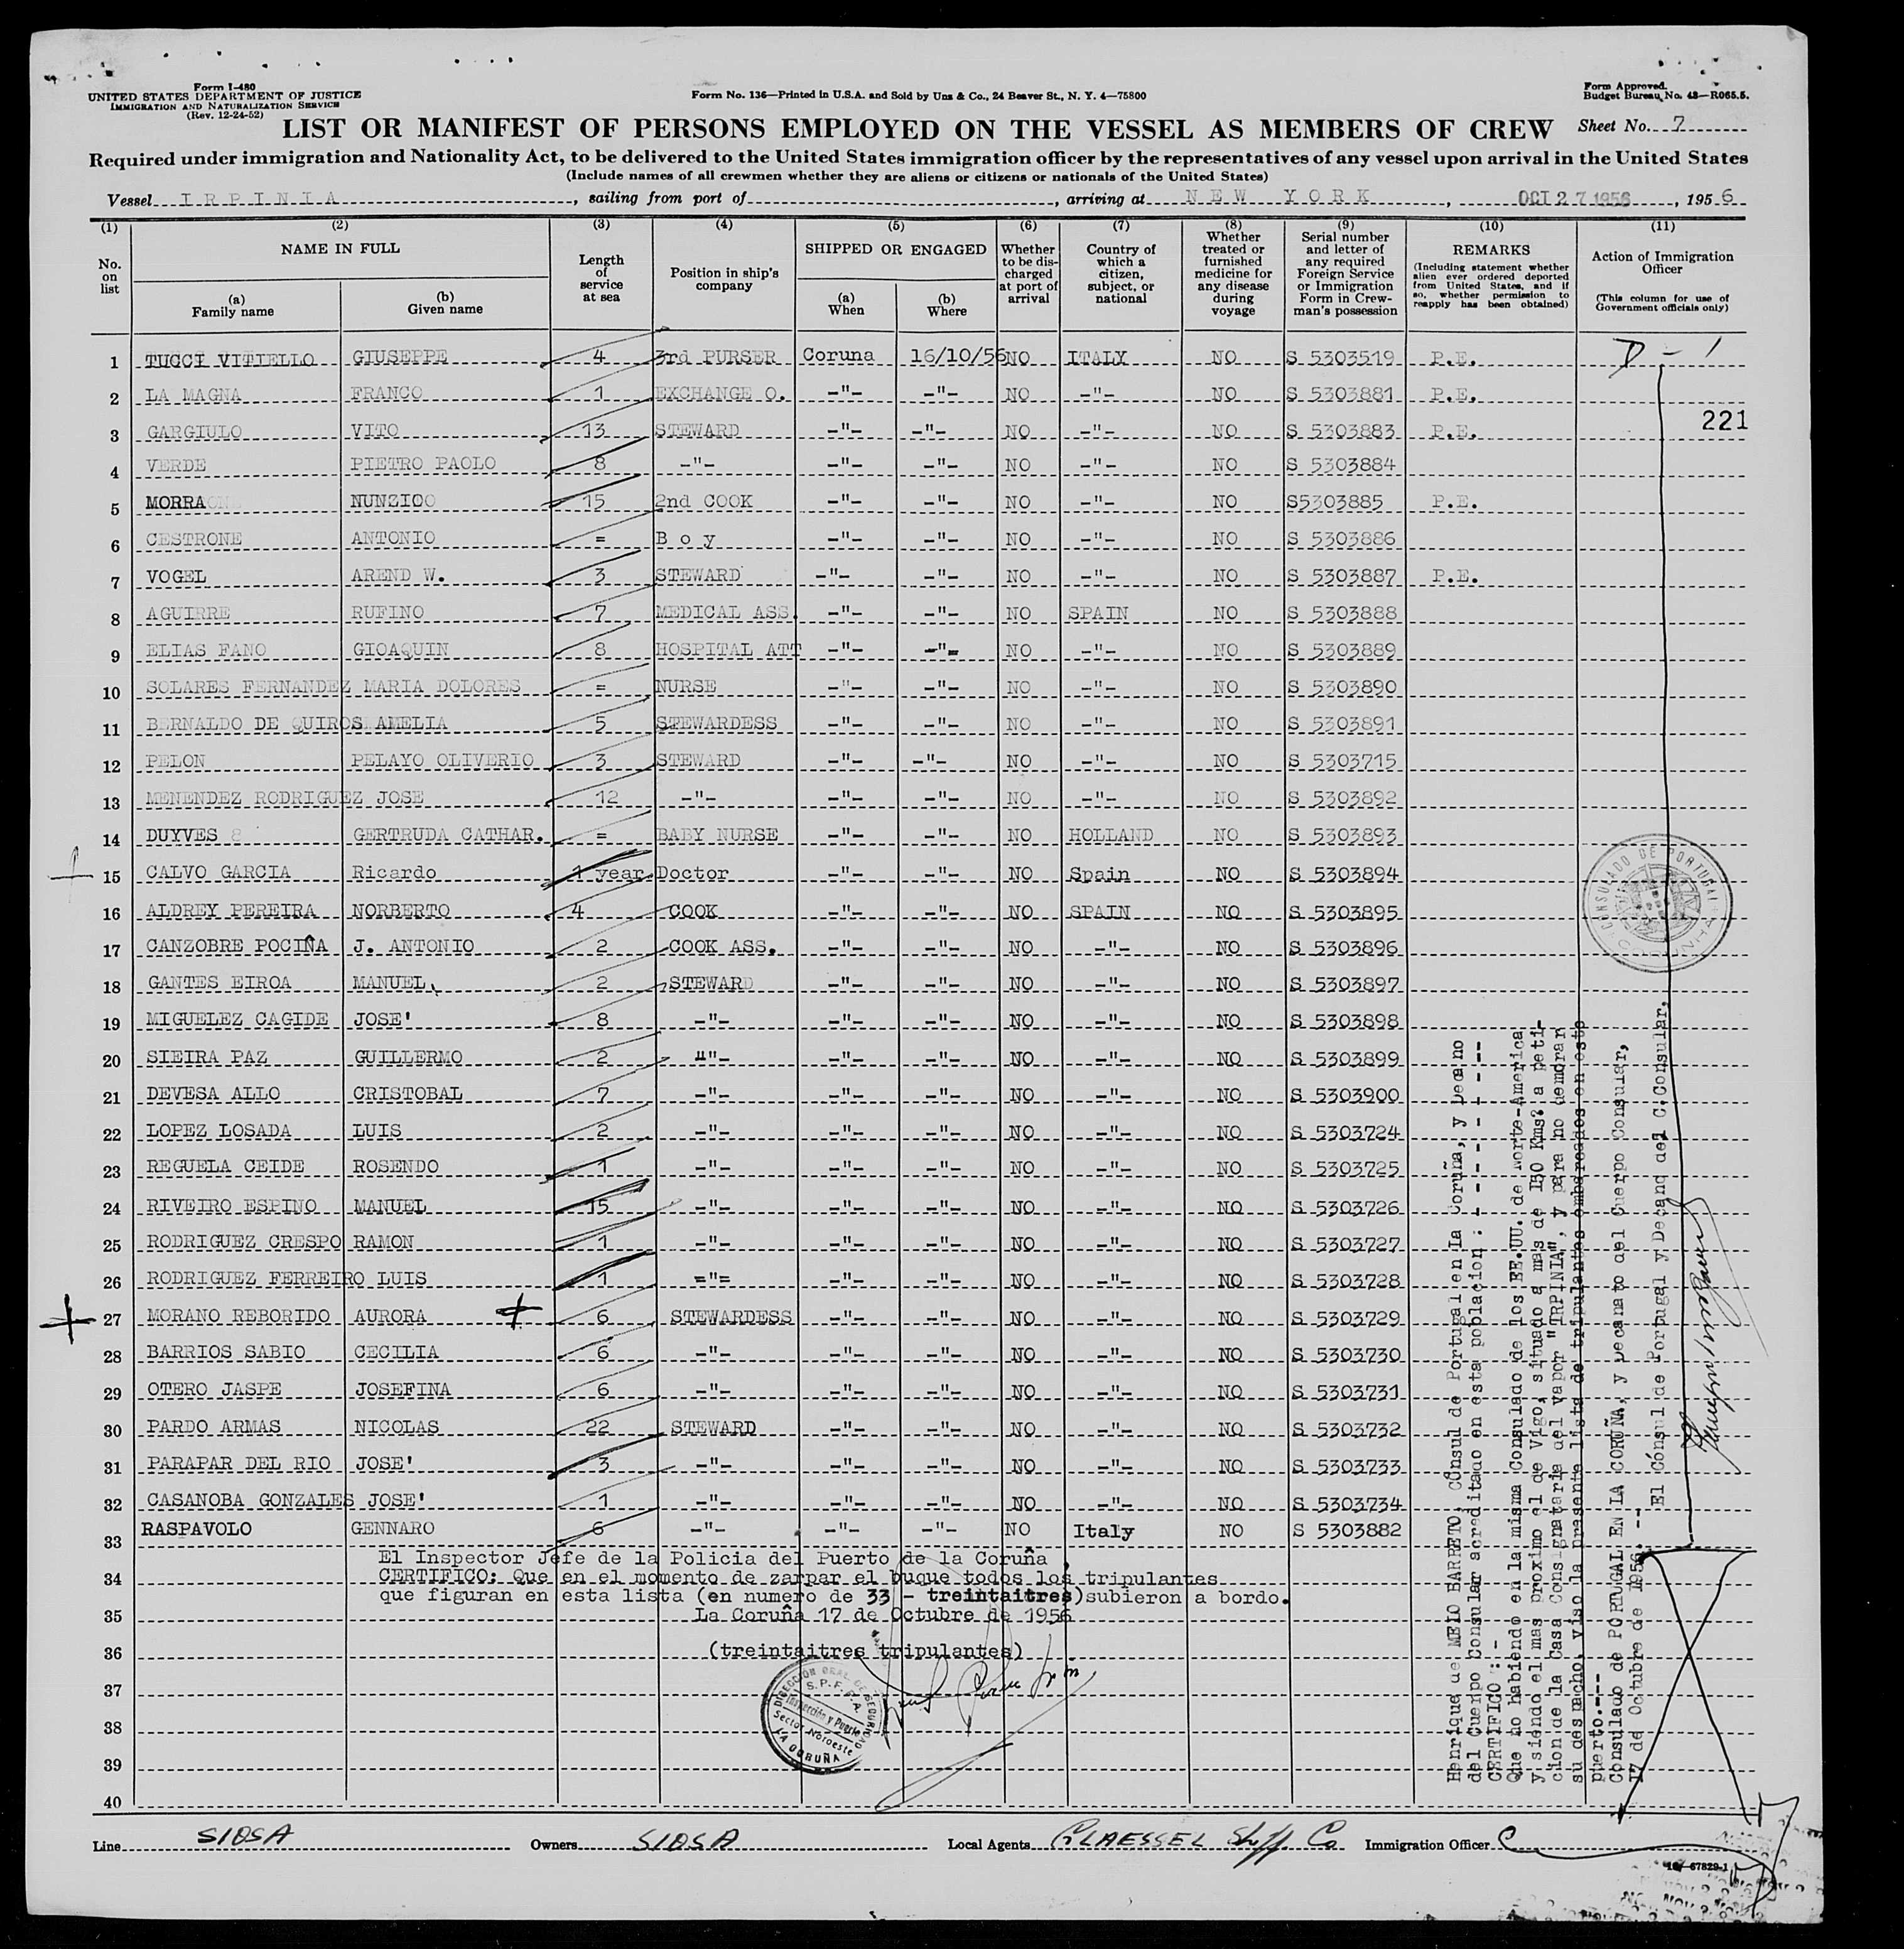 Form I-480
UNITED STATES DEPARTMENT OF JUSTICE
IMMIGRATION AND NATURALIZATION SERVICE
(Rev. 12-24-52)
Form No. 136—Printed in U.S.A. and Sold by Unz & Co., 24 Beaver St., N. Y. 4—75800
Form Approved.
Budget Bureau No. 43—R065.5.
LIST OR MANIFEST OF PERSONS EMPLOYED ON THE VESSEL AS MEMBERS OF CREW Sheet No. 7
Required under immigration and Nationality Act, to be delivered to the United States immigration officer by the representatives of any vessel upon arrival in the United States
(Include names of all crewmen whether they are aliens or citizens or nationals of the United States)
Vessel IRPINIA, sailing from port of , arriving at NEW YORK, OCT 27 1956, 1956
(1) (2) (3) (4) (5) (6) (7) (8) (9) (10) (11)
No. on list
NAME IN FULL
(a) Family name
(b) Given name
Length of service at sea
Position in ship's company
SHIPPED OR ENGAGED
(a) When
(b) Where
Whether to be discharged at port of arrival
Country of which a citizen, subject, or national
Whether treated or furnished medicine for any disease during voyage
Serial number and letter of any required Foreign Service or Immigration Form in Crewman's possession
REMARKS
(Including statement whether alien ever ordered deported from United States, and if so, whether permission to reapply has been obtained)
Action of Immigration Officer
(This column for use of Government officials only)
1 TUCCI VITIELLO GIUSEPPE 4 3rd PURSER Coruna 16/10/56 NO ITALY NO S 5303519 P.E. D - 1
2 LA MAGNA FRANCO 1 EXCHANGE O. -"- -"- NO -"- NO S 5303881 P.E.
221
3 GARGIULO VITO 13 STEWARD -"- -"- NO -"- NO S 5303883 P.E.
4 VERDE PIETRO PAOLO 8 -"- -"- -"- NO -"- NO S 5303884
5 MORRA NUNZIO 15 2nd COOK -"- -"- NO -"- NO S5303885 P.E.
6 CESTRONE ANTONIO = Boy -"- -"- NO -"- NO S 5303886
7 VOGEL AREND W. 3 STEWARD -"- -"- NO -"- NO S 5303887 P.E.
8 AGUIRRE RUFINO 7 MEDICAL ASS. -"- -"- NO SPAIN NO S 5303888
9 ELIAS FANO GIOAQUIN 8 HOSPITAL ATT -"- -"- NO -"- NO S 5303889
10 SOLARES FERNANDEZ MARIA DOLORES = NURSE -"- -"- NO -"- NO S 5303890
11 BERNALDO DE QUIROS AMELIA 5 STEWARDESS -"- -"- NO -"- NO S 5303891
12 PELON PELAYO OLIVERIO 3 STEWARD -"- -"- NO -"- NO S 5303715
13 MENENDEZ RODRIGUEZ JOSE 12 -"- -"- -"- NO -"- NO S 5303892
14 DUYVES GERTRUDA CATHAR. = BABY NURSE -"- -"- NO HOLLAND NO S 5303893
15 CALVO GARCIA Ricardo 1 year Doctor -"- -"- NO Spain NO S 5303894
16 ALDREY PEREIRA NORBERTO 4 COOK -"- -"- NO SPAIN NO S 5303895
17 CANZOBRE POCIÑA J. ANTONIO 2 COOK ASS. -"- -"- NO -"- NO S 5303896
18 GANTES EIROA MANUEL 2 STEWARD -"- -"- NO -"- NO S 5303897
19 MIGUELEZ CAGIDE JOSE' 8 -"- -"- -"- NO -"- NO S 5303898
20 SIEIRA PAZ GUILLERMO 2 -"- -"- -"- NO -"- NO S 5303899
21 DEVESA ALLO CRISTOBAL 7 -"- -"- -"- NO -"- NO S 5303900
22 LOPEZ LOSADA LUIS 2 -"- -"- -"- NO -"- NO S 5303724
23 REGUELA CEIDE ROSENDO 1 -"- -"- -"- NO -"- NO S 5303725
24 RIVEIRO ESPINO MANUEL 15 -"- -"- -"- NO -"- NO S 5303726
25 RODRIGUEZ CRESPO RAMON 1 -"- -"- -"- NO -"- NO S 5303727
26 RODRIGUEZ FERREIRO LUIS 1 ="= -"- -"- NO -"- NO S 5303728
27 MORANO REBORIDO AURORA 6 STEWARDESS -"- -"- NO -"- NO S 5303729
28 BARRIOS SABIO CECILIA 6 -"- -"- -"- NO -"- NO S 5303730
29 OTERO JASPE JOSEFINA 6 -"- -"- -"- NO -"- NO S 5303731
30 PARDO ARMAS NICOLAS 22 STEWARD -"- -"- NO -"- NO S 5303732
31 PARAPAR DEL RIO JOSE' 3 -"- -"- -"- NO -"- NO S 5303733
32 CASANOBA GONZALES JOSE' 1 -"- -"- -"- NO -"- NO S 5303734
33 RASPAVOLO GENNARO 6 -"- -"- -"- NO Italy NO S 5303882
El Inspector Jefe de la Policia del Puerto de la Coruña,
34 CERTIFICO: Que en el momento de zarpar el buque todos los tripulantes
que figuran en esta lista (en numero de 33 - treintaitres) subieron a bordo.
35 La Coruña 17 de Octubre de 1956
36 (treintaitres tripulantes)
37
38
39
40
DIRECCIÓN GRAL. DE SEGURIDAD
S.P.F.P.A.
Inspección y Puerto
Sector Noroeste
LA CORUÑA
CONSULADO DE PORTUGAL
CORUNHA
Henrique de MELO BARRETO, Cónsul de Portugal en la Coruña, y Decano
del Cuerpo Consular acreditado en esta poblacion : - - - - - - - -
CERTIFICO : -
Que no habiendo en la misma Consulado de los EE.UU. de Norte-America
y siendo el mas proximo el de Vigo, situado a mas de 150 Kms? a peti-
cion de la Casa Consignataria del vapor "IRPINIA", y para no demorar
su despacho, viso la presente lista de tripulantes embarcados en este
puerto.----
Consulado de PORTUGAL EN LA CORUÑA, y Decanato del Cuerpo Consular,
17 de Octubre de 1956.--
El Cónsul de Portugal y Decano del C.Consular,
Line SIOSA Owners SIOSA Local Agents Immigration Officer
16—67829-1